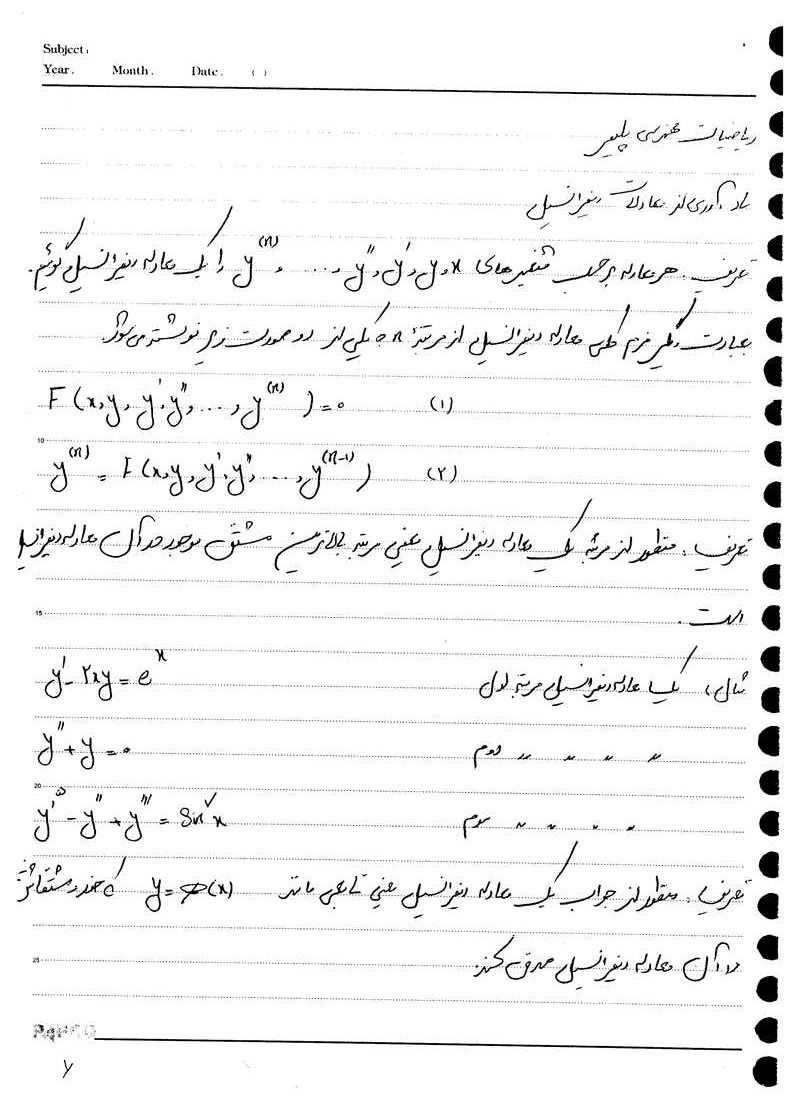 Subject:
Year. Month. Date. ( )
ریاضیات مهندسی پلیمر
یادآوری از معادلات دیفرانسیل
تعریف. هر معادله برحسب متغیرهای x, y, y', y'', ..., y^(n) را یک معادله دیفرانسیل گوئیم.
بعبارت دیگر فرم کلی معادله دیفرانسیل از مرتبهٔ n به یکی از دو صورت زیر نوشته می‌شود.
F(x, y, y', y'', ..., y^(n)) = ۰ (۱)
10
y^(n) = F(x, y, y', y'', ..., y^(n-1)) (۲)
تعریف. منظور از مرتبه یک معادله دیفرانسیل یعنی مرتبه بالاترین مشتق موجود در آن معادله دیفرانسیل
15
است.
مثال، یک معادله دیفرانسیل مرتبه اول y' - ۲xy = e^x
" " " " دوم y'' + y = ۰
20
" " " " سوم y'^۵ - y'' + y''' = Sin^۷ x
تعریف. منظور از جواب یک معادله دیفرانسیل یعنی تابعی مانند y = φ(x) که خود و مشتقاتش
25
در آن معادله دیفرانسیل صدق کند.
PAPCO